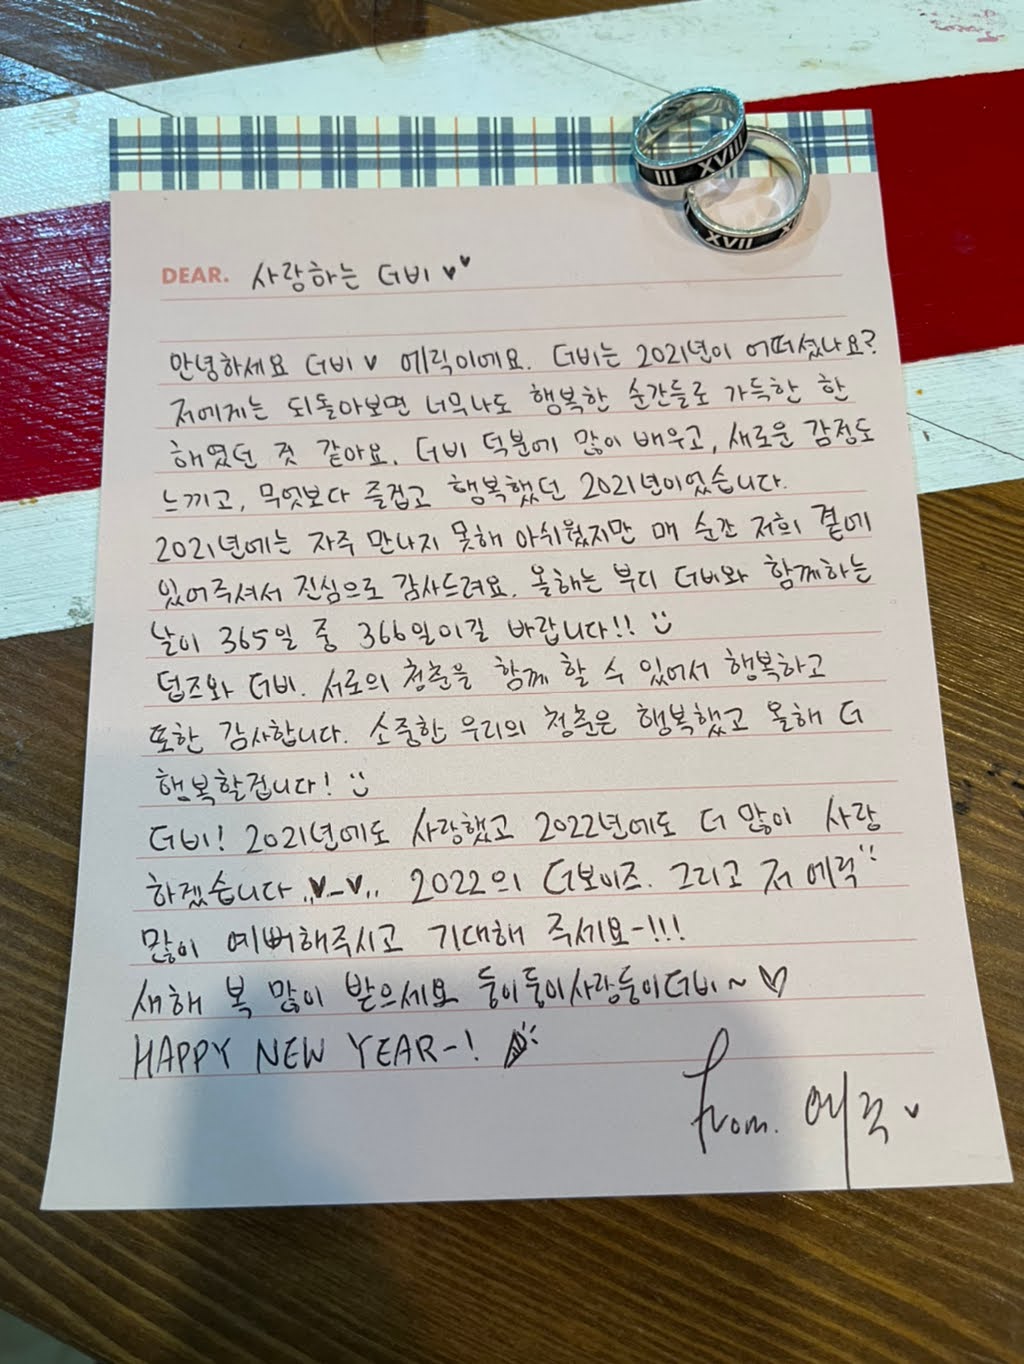 III XVIII
XVII X
DEAR. 사랑하는 더비 ♥♥
안녕하세요 더비 ♥ 에릭이에요. 더비는 2021년이 어떠셨나요?
저에게는 되돌아보면 너무나도 행복한 순간들로 가득한 한
해였던 것 같아요. 더비 덕분에 많이 배우고, 새로운 감정도
느끼고, 무엇보다 즐겁고 행복했던 2021년이었습니다.
2021년에는 자주 만나지 못해 아쉬웠지만 매 순간 저희 곁에
있어주셔서 진심으로 감사드려요. 올해는 부디 더비와 함께하는
날이 365일 중 366일이길 바랍니다!! :)
덥즈와 더비. 서로의 청춘을 함께 할 수 있어서 행복하고
또한 감사합니다. 소중한 우리의 청춘은 행복했고 올해 더
행복할겁니다! :)
더비! 2021년에도 사랑했고 2022년에도 더 많이 사랑
하겠습니다 ,,♥_♥,, 2022의 더보이즈. 그리고 저 에릭
많이 예뻐해주시고 기대해 주세요-!!!
새해 복 많이 받으세요 둥이둥이사랑둥이더비~ ♡
HAPPY NEW YEAR-!
from. 에릭 ♥